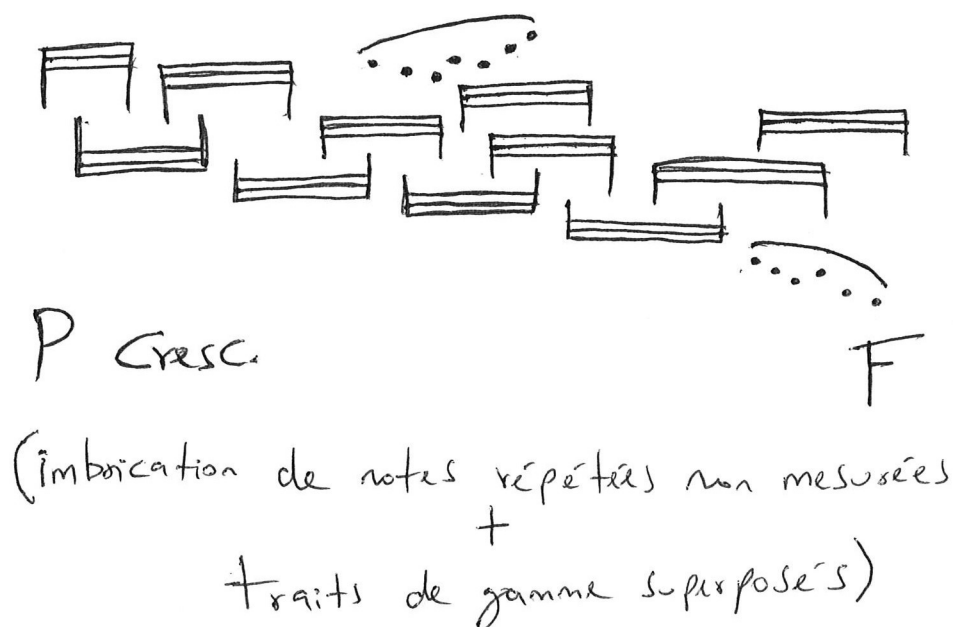 P Cresc. F
(imbrication de notes répétées non mesurées
+
traits de gamme superposés)